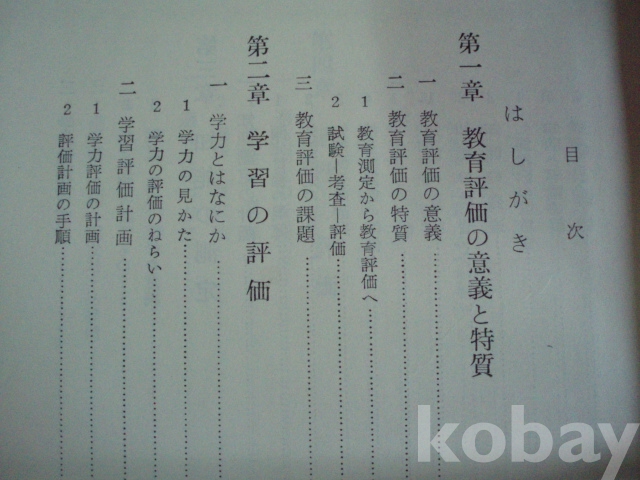 目次
はしがき
第一章 教育評価の意義と特質
一 教育評価の意義
二 教育評価の特質
1 教育測定から教育評価へ
2 試験—考査—評価
三 教育評価の課題
第二章 学習の評価
一 学力とはなにか
1 学力の見かた
2 学力の評価のねらい
二 学習評価計画
1 学力評価の計画
2 評価計画の手順
kobay